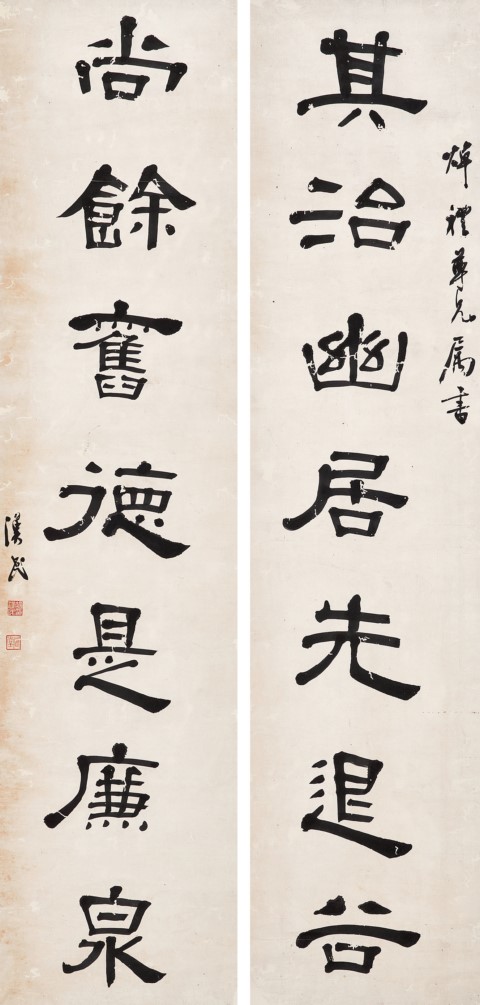 焯禮尊兄属書
其治幽居先退谷
尚餘舊德是廉泉
漢民